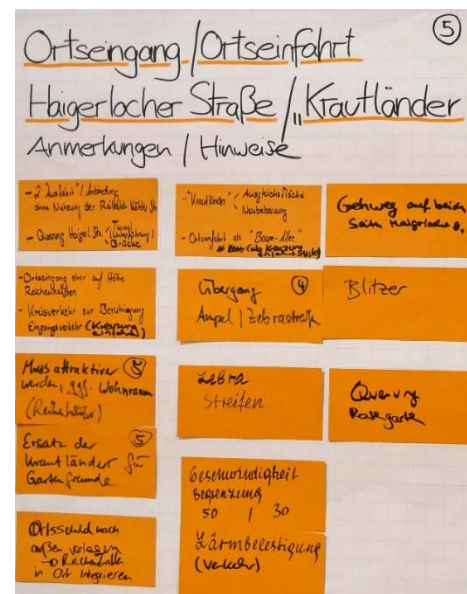 5
Ortseingang / Ortseinfahrt
Haigerlocher Straße / "Krautländer
Anmerkungen / Hinweise
- 2. "Ausfahrt" / Anbindung
ohne Nutzung der
- Querung Haigerl. Str.
Tunnel
(Unterführung)
Brücke
- Ortseingang eher auf Höhe
Reichenhalden
- Kreisverkehr zur Beruhigung
Eingangsverkehr (Kreuzung
einfahrt)
Muss attraktiver 5
werden, ggf. Wohnraum
(Reihenhäuser)
Ersatz der 5
Krautländer für
Gartenfreunde
Ortsschild nach
außen verlegen
in Ort Integrieren
- "Krautländer" Ausgleichsfläche
Neubebauung
- Ortseinfahrt als "Baum-Allee"
Übergang 4
Ampel / Zebrastreifen
Zebra
Streifen
Geschwindigkeit
Begrenzung
50 | 30
Lärmbelestigung
(Verkehr)
Gehweg auf beiden
Seiten
Blitzer
Querung
Rosengarten